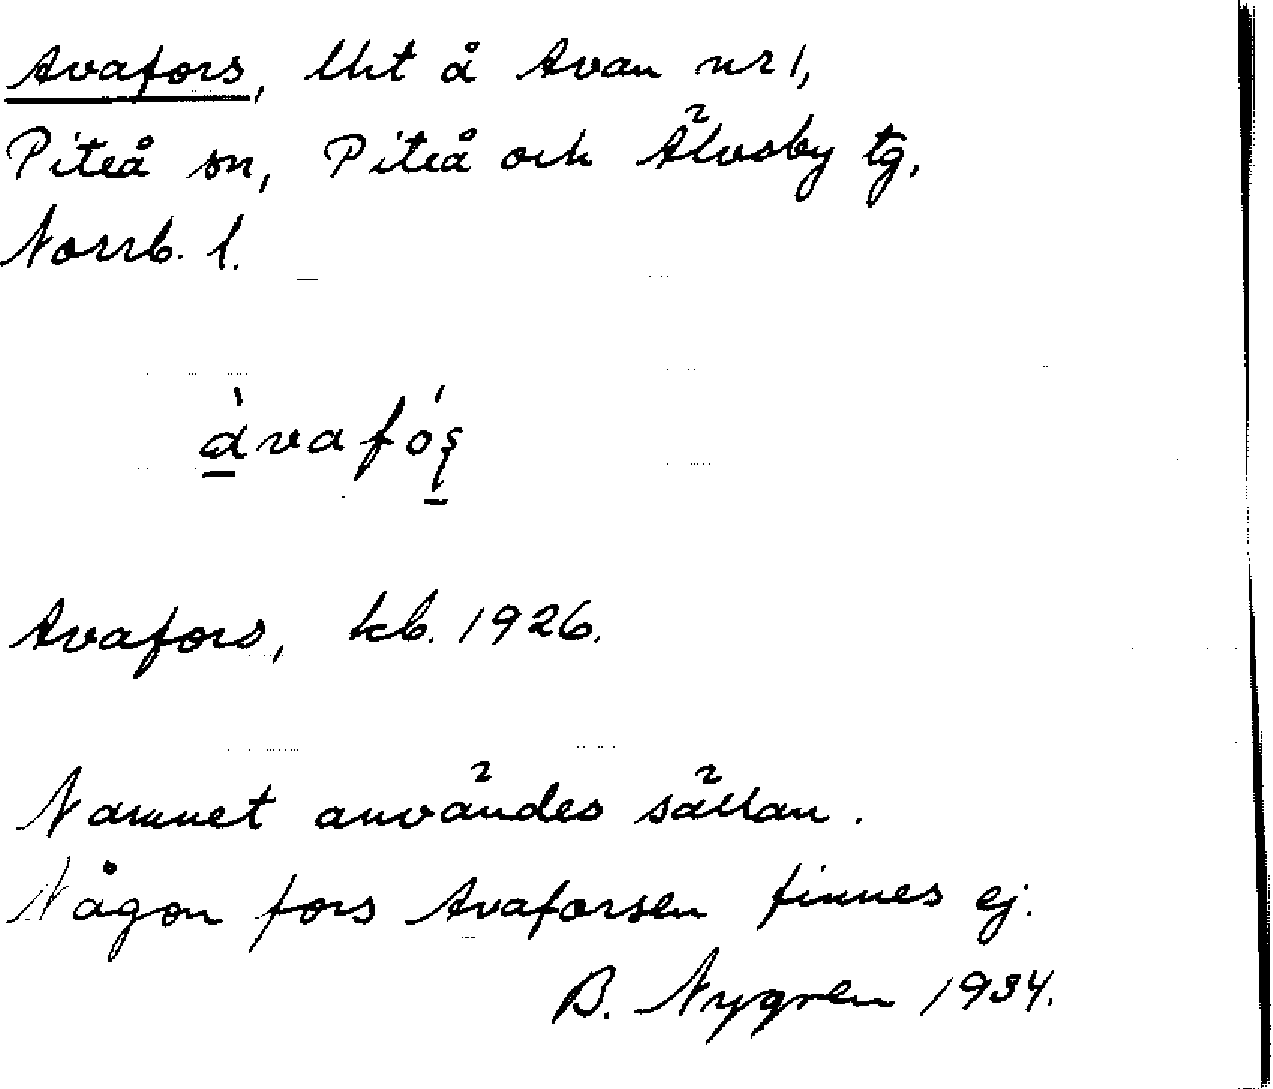 Avafors, lht å Avan nr 1,
Piteå sn, Piteå och Älvsby tg,
Norrb. l.
àvafóș
Avafors, kb. 1926.
Namnet användes sällan.
Någon fors Avaforsen finnes ej.
B. Nygren 1934.